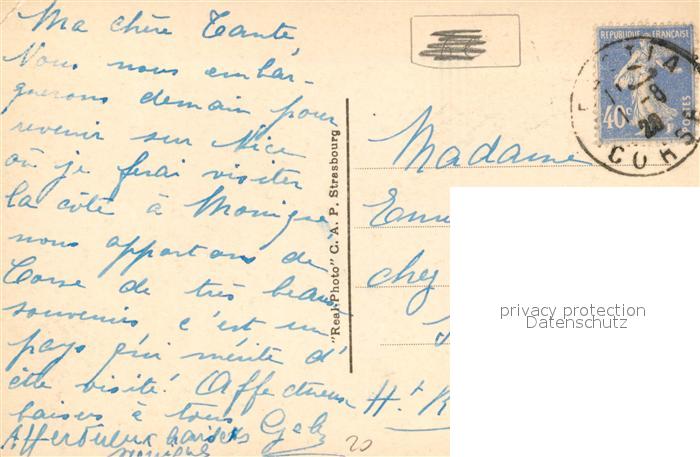 Ma chère Tante,
Nous nous embar-
querons demain pour
revenir sur Nice
où je ferai visiter
la côte à Monique,
nous apportons de
Corse de très beaux
souvenirs c'est un
pays qui mérite d'
être visité! Affectueux
baisers à tous
Affectueux baisers
Monique
20
"Real-Photo" C. A. P. Strasbourg
REPUBLIQUE FRANÇAISE
40c
POSTES
CORSE
Madame
chez
Ht R
privacy protection
Datenschutz